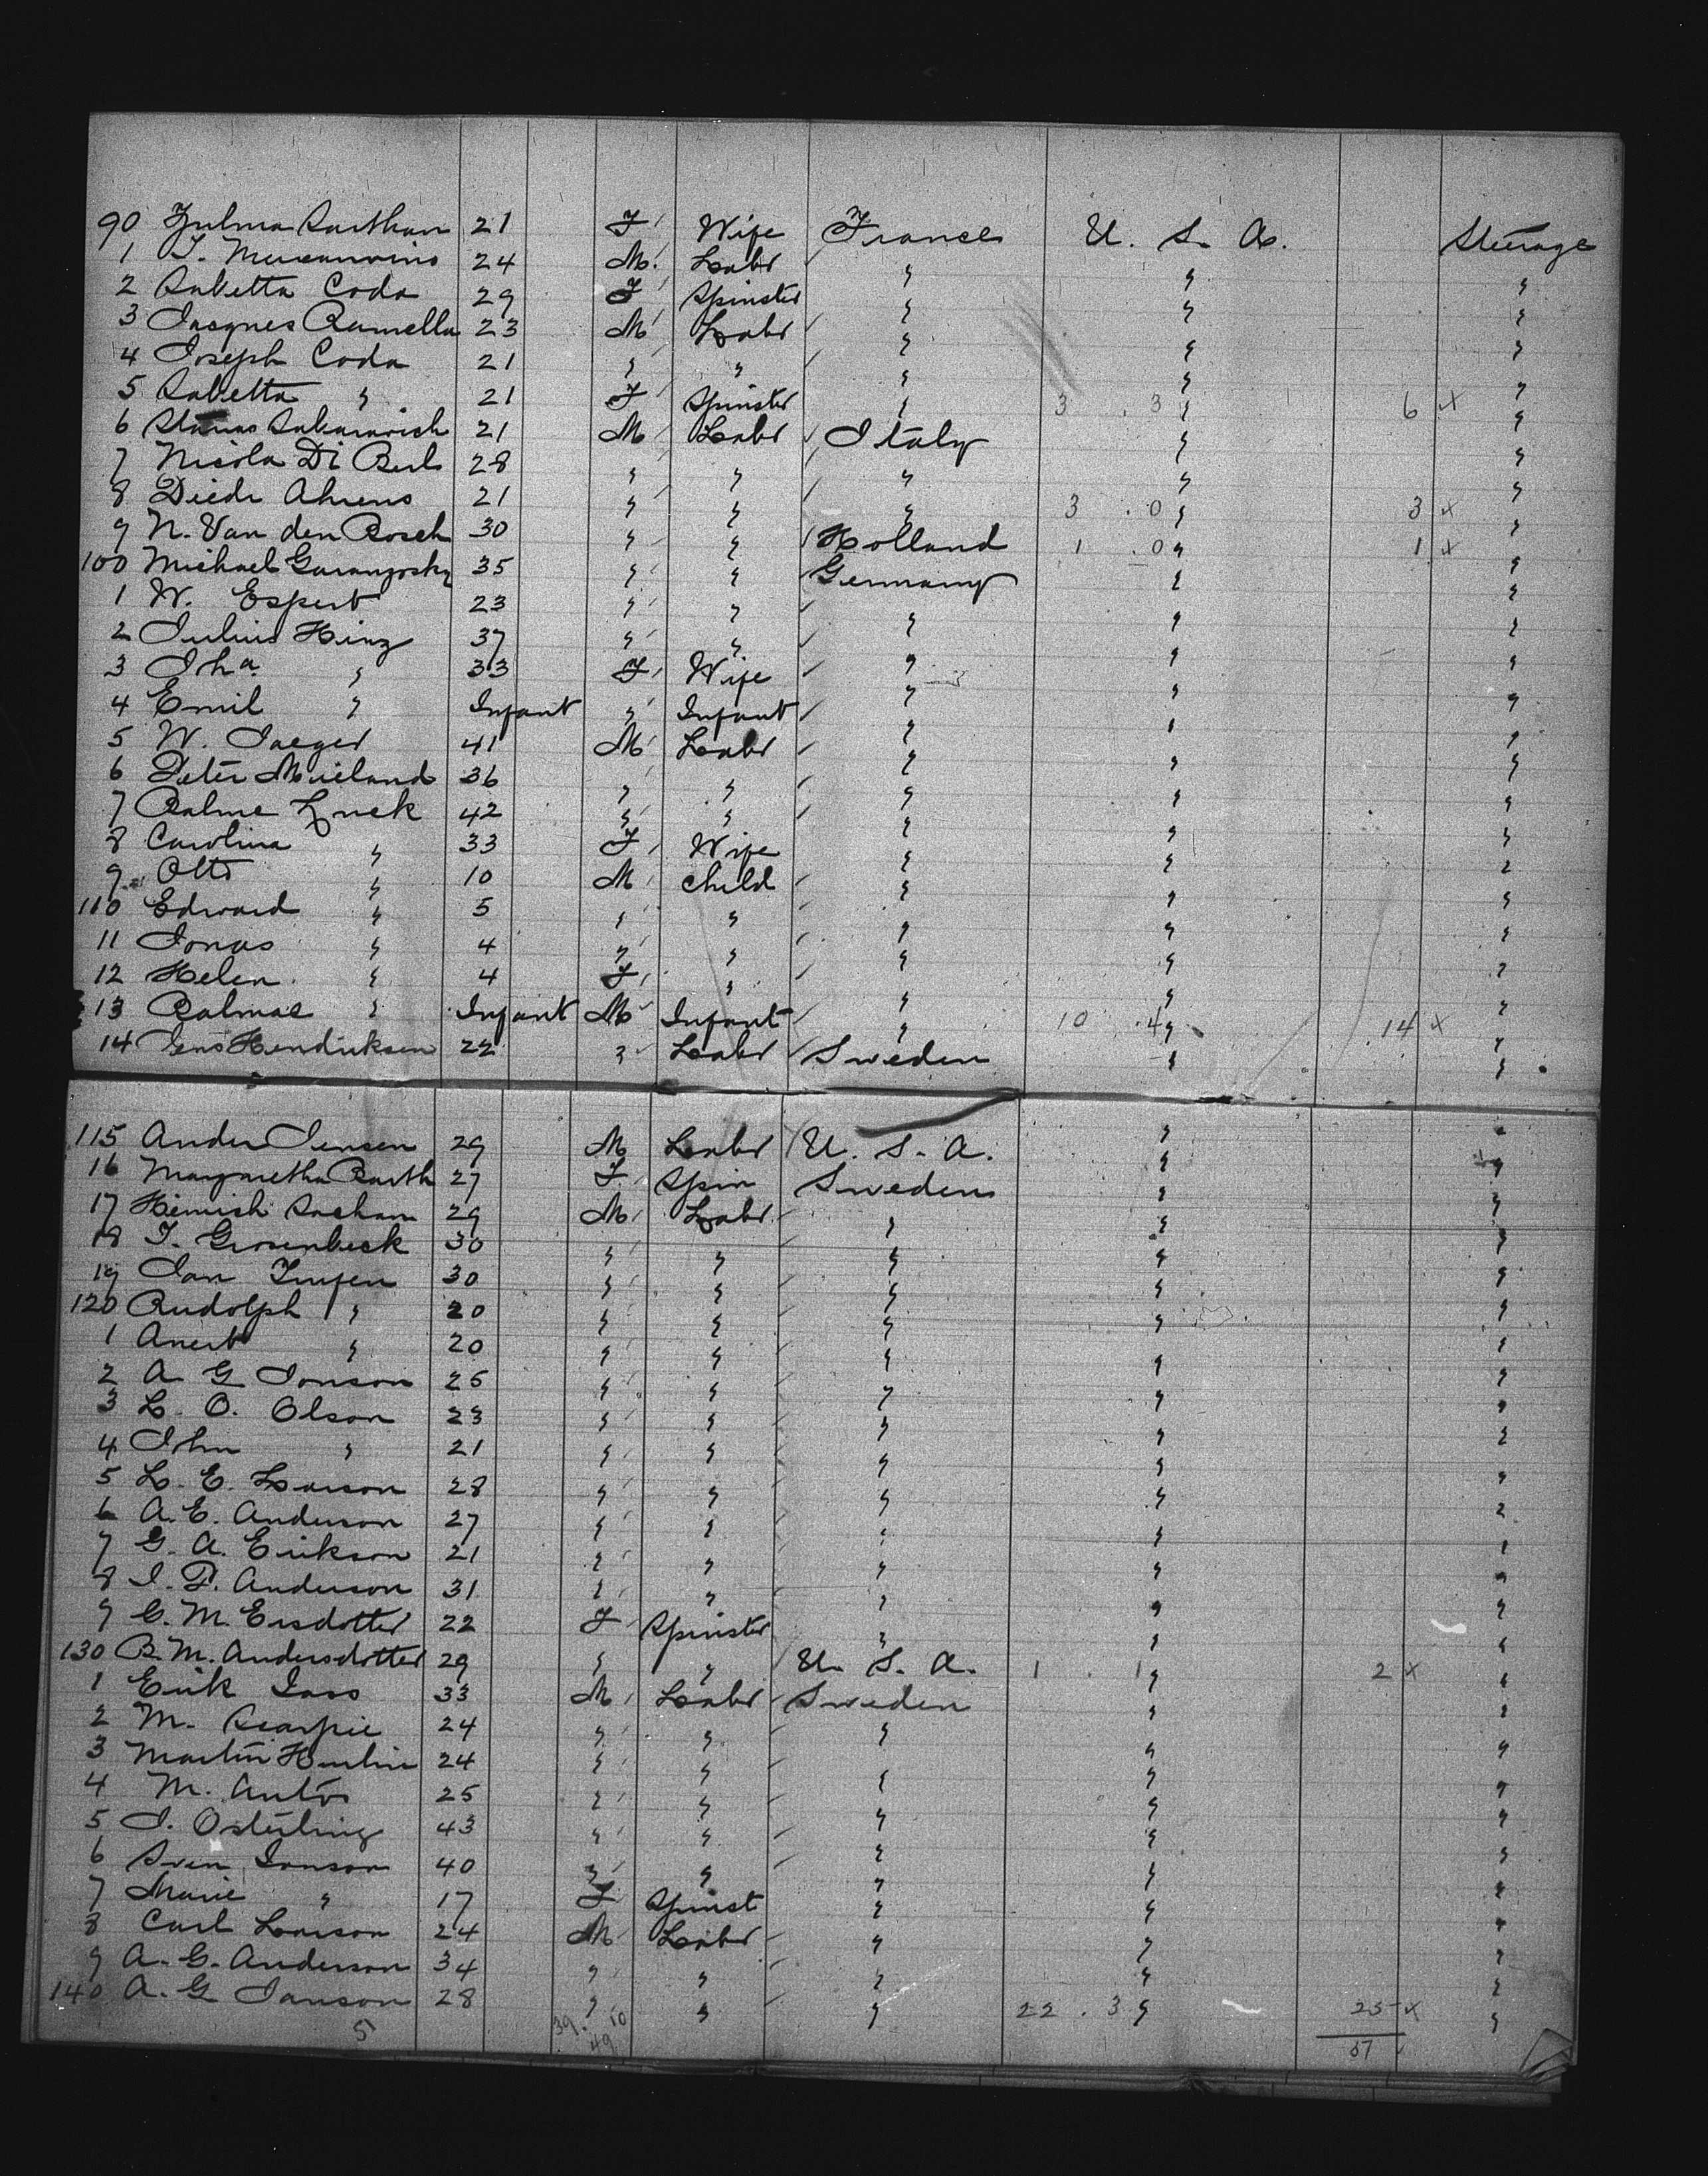 90 Zulma Sarthan 21 F Wife France U. S. A. Steerage
1 T. 24 M. Labr " " "
2 Sabetta Coda 29 F Spinster " " "
3 Jacques Ramella 23 M Labr " " "
4 Joseph Coda 21 " " " " "
5 Sabetta " 21 F Spinster " 3 . 3 " 6 x "
6 21 M Labr Italy " "
7 Nicola Di 28 " " " " "
8 Diedr Ahrens 21 " " " 3 . 0 " 3 x "
9 N. Van den Bosch 30 " " Holland 1 . 0 " 1 x "
100 Michael 35 " " Germany " "
1 W. Espert 23 " " " " "
2 Julius Hinz 37 " " " " "
3 Joha " 33 F Wife " " "
4 Emil " Infant " Infant " " "
5 W. Jaeger 41 M Labr " " "
6 Peter 36 " " " " "
7 Balme Luck 42 " " " " "
8 Carolina " 33 F Wife " " "
9 Otto " 10 M Child " " "
110 Edward " 5 " " " " "
11 Jonas " 4 " " " " "
12 Helen " 4 F " " " "
13 Balmae " Infant M Infant " 10 . 4 " 14 x "
14 Jens Hendriksen 22 " Labr Sweden " "
115 Ander Jensen 29 M Labr U. S. A. " "
16 Margaretha Barth 27 F Spin Sweden " "
17 Heinrich 29 M Labr " " "
18 T. Grosenbeck 30 " " " " "
19 Jan 30 " " " " "
120 Rudolph " 20 " " " " "
1 Anert " 20 " " " " "
2 A G Jonson 25 " " " " "
3 L. O. Olson 23 " " " " "
4 John " 21 " " " " "
5 L. E. Larson 28 " " " " "
6 A. E. Anderson 27 " " " " "
7 G. A. Erikson 21 " " " " "
8 I. P. Anderson 31 " " " " "
9 C. M. Ersdotter 22 F Spinster " " "
130 B. M. Andersdotter 29 " " U. S. A. 1 . 1 " 2 x "
1 Erik 33 M Labr Sweden " "
2 M. 24 " " " " "
3 Martin 24 " " " " "
4 M. 25 " " " " "
5 J. Osterling 43 " " " " "
6 Sven Jonson 40 " " " " "
7 Marie " 17 F Spinst " " "
8 Carl Larson 24 M Labr " " "
9 A. G. Anderson 34 " " " " "
140 A. G Janson 28 " " " 22 . 3 " 25 x "
5 39. 10 51
49